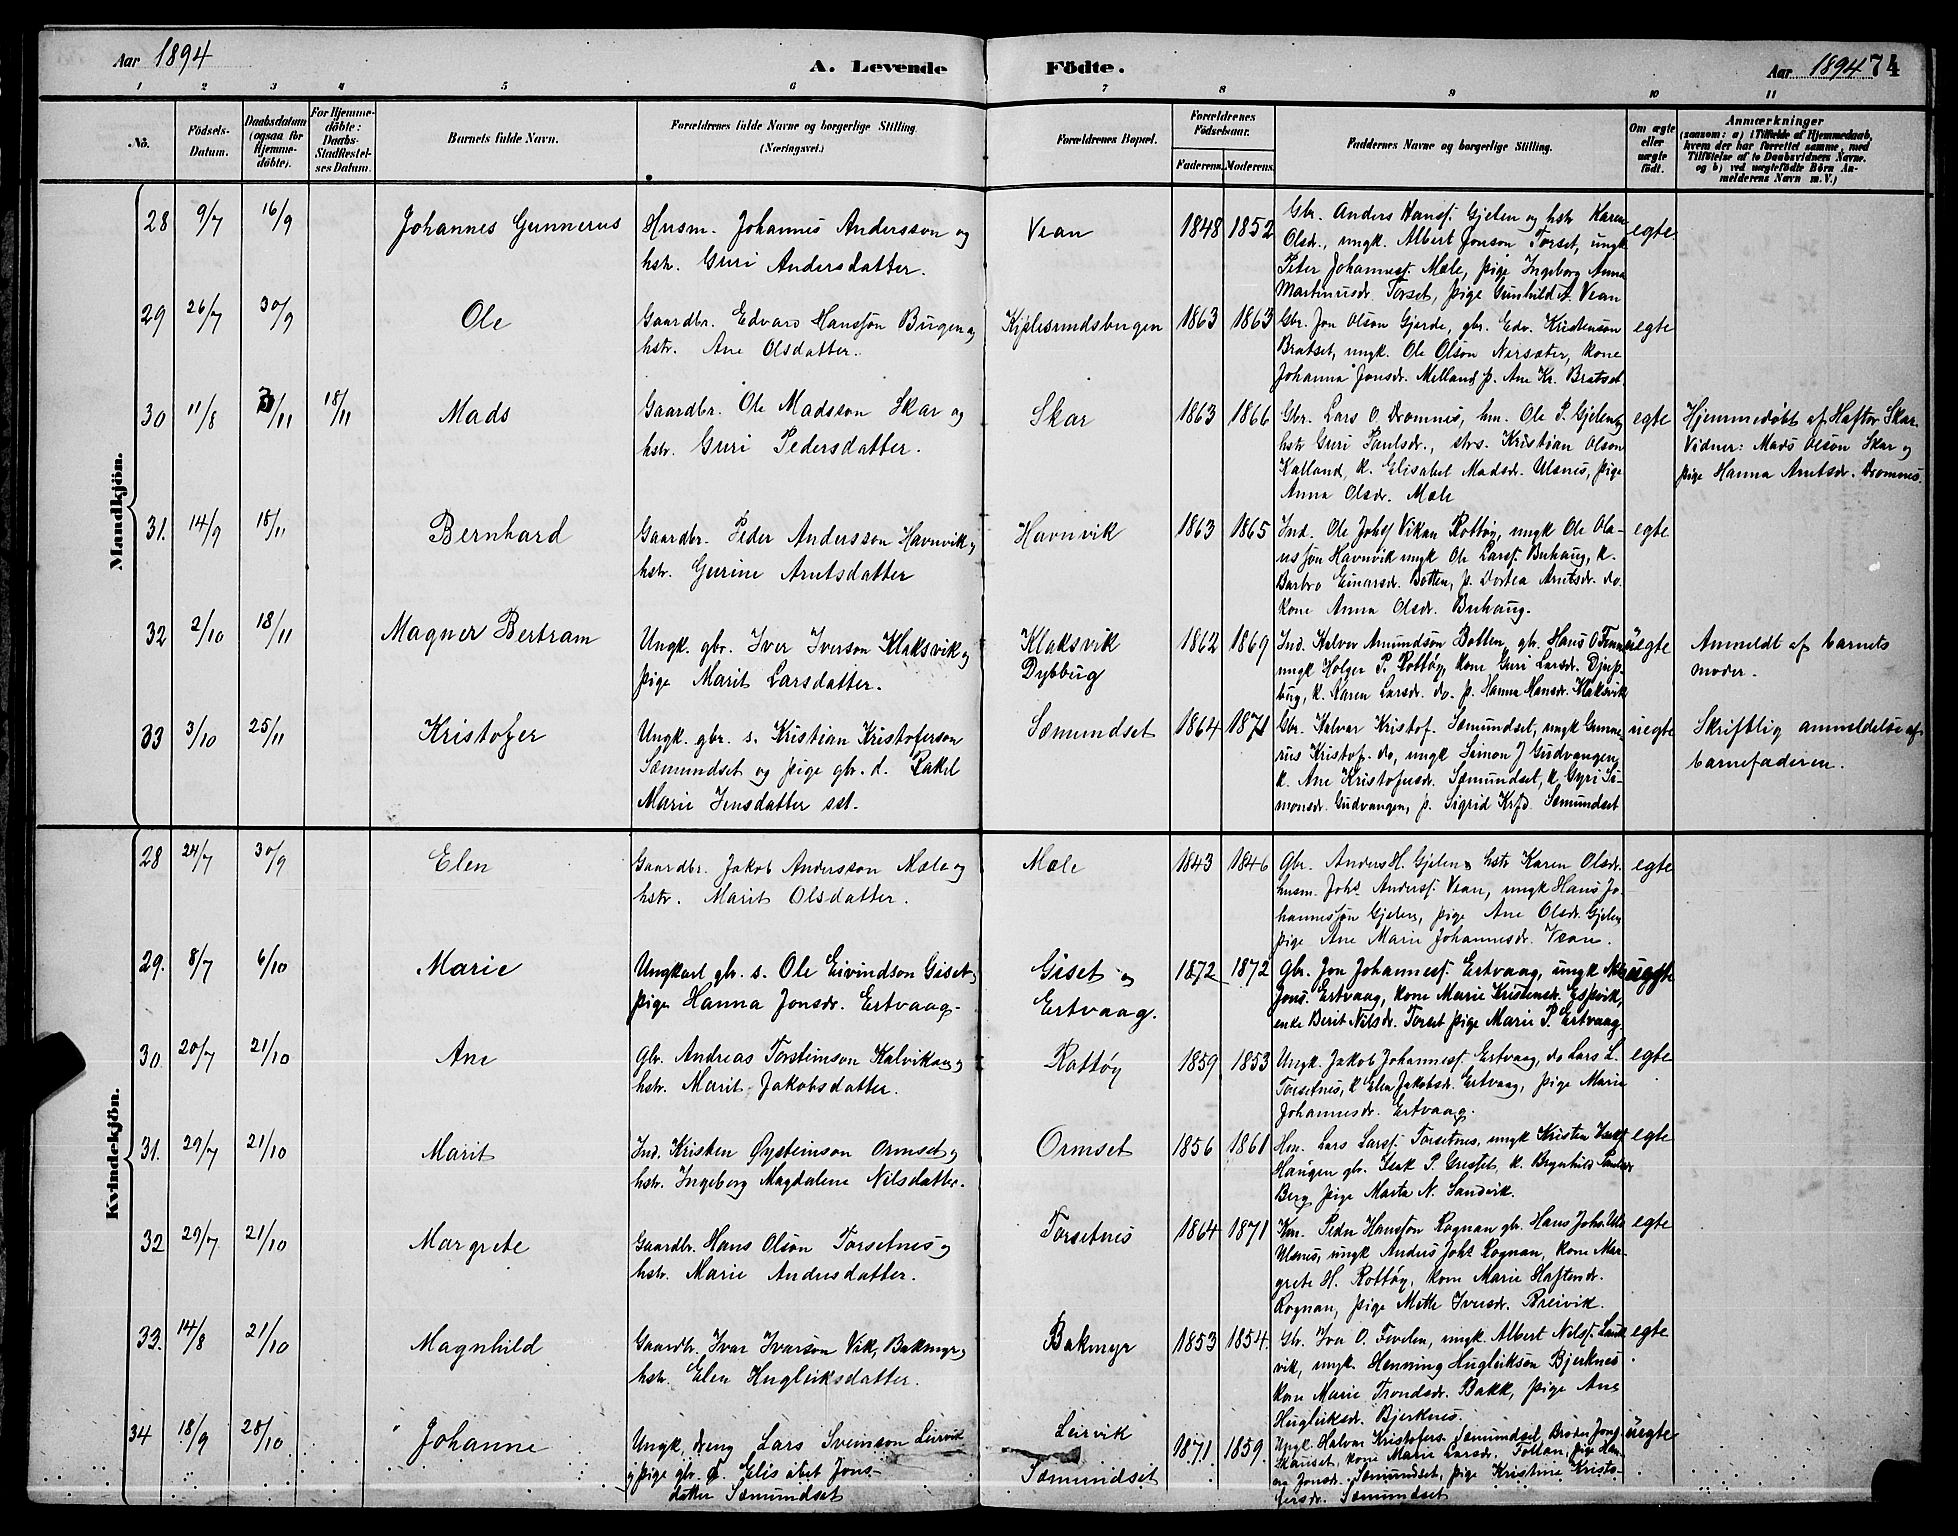 Aar 1894
A. Levende Födte.
Aar 1894 74
1 2 3 4 5 6 7 8 9 10 11
No.
Födsels-Datum.
Daabsdatum (ogsaa for Hjemme-döbte).
For Hjemme-döbte: Daabs-Stadfæstel-ses Datum.
Barnets fulde Navn.
Forældrenes fulde Navne og borgerlige Stilling.
(Næringsvei.)
Forældrenes Bopæl.
Forældrenes Födselsaar.
Faderens. Moderens.
Faddernes Navne og borgerlige Stilling.
Om ægte eller uægte födt.
Anmærkninger
(saasom: a) i Tilfælde af Hjemmedaab,
hvem der har forrettet samme, med
Tilföielse af to Daabsvidners Navne.
og b) ved uægtefödte Börn An-
melderens Navn m. V.)
Mandkjön.
28 9/7 16/9 Johannes Gunnerus
Husm. Johannes Andersson og
hstr. Guri Andersdatter.
Vean 1848 1852
Gbr. Anders Hansf. Gjelen og hstr Karen
Olsdr., ungk. Albert Jonson Torset, ungk
Peter Johannesf. Mæle, pige Ingeborg Anna
Martinusdr. Torset, pige Gunhild A. Vean
egte.
29 26/7 30/9 Ole
Gaardbr. Edvard Hansson Bugen og
hstr. Ane Olsdatter.
Kjølesundsbugen 1863 1863
Gbr. Jon Olson Gjerde, gbr. Edv. Kristenson
Bratset, ungk. Ole Olson Nersæter, kone
Johanna Jonsdr. Melland p. Ane Kr. Bratset
egte
30 11/8 /11 18/11 Mads
Gaardbr. Ole Madsson Skar og
hstr. Guri Pedersdatter.
Skar 1863 1866
Gbr. Lars O. Dromnes, hm. Ole P. Gjelen og
hstr Guri Paulsdr., strs. Kristian Olson
Kalland, k. Elisabet Madsdr. Ulsnes, pige
Anna Olsdr. Mæle
egte
Hjemmedøbt af Haftor Skar.
Vidner: Mads Olson Skar og
pige Hanna Arntsdr. Dromnes.
31. 14/9 18/11 Bernhard
Gaardbr. Peder Andersson Havnvik og
hstr. Gurine Arntsdatter
Havnvik 1863 1865
Ind. Ole Johs Vikan Rottøy, ungk Ole Ola-
usson Havnvik ungk Ole Larsf. Buhaug, k.
Barbro Einarsdr. Botten, p. Dortea Arntsdr. do.
kone Anna Olsdr. Buhaug.
egte
32 2/10 18/11 Magner Bertram
Ungk. gbr. Iver Iverson Klaksvik og
pige Marit Larsdatter.
Klaksvik
Dybbug
1862 1869
Ind. Halvor Amundson Botten, gbr. Hans O
ungk Holger P. Rottøy, kone Guri Larsdr. Djup-
bug, k. Karen Larsdr. do. p. Hanna Hansdr. Klaksvik
uegte
Anmeldt af barnets
moder.
33 3/10 25/11 Kristofer
Ungk. gbr. s. Kristian Kristoferson
Sæmundset og pige gbr. d. Rakel
Marie Jensdatter sst.
Sæmundset 1864 1871
Gbr. Halvar Kristof. Sæmundset, ungk Gunne-
rus Kristof. do, ungk Simon J Gudvangen,
k. Ane Kristofersdr. Sæmundset, k Gyri Si-
monsdr. Gudvangen, p. Sigrid Krfd. Sæmundset
uegte
Skriftlig anmeldelse af
barnefaderen.
Kvindekjön.
28 24/7 30/9 Elen
Gaardbr. Jakob Andersson Mæle og
hstr. Marit Olsdatter.
Mæle 1843 1846
Gbr. Anders H. Gjelen og hstr Karen Olsdr.
husm. Johs Andersf. Vean, ungk Hans Jo-
hannesson Gjelen, pige Ane Olsdr. Gjelen,
pige Ane Marie Johannesdr. Vean.
egte
29. 8/7 6/10 Marie
Ungkarl gbr. s. Ole Eivindson Giset og
pige Hanna Jonsdr. Ertvaag.
Giset og
Ertvaag.
1872 1872
Gbr. Jon Johannesf. Ertvaag, ungk
Jons. Ertvaag, kone Marie Kristensdr. Espvik,
enke Berit Nilsdr. Torset pige Marie P. Ertvaag.
uegte
30 20/7 21/10 Ane
Gbr. Andreas Torsteinson Kalvikan og
hstr. Marit Jakobsdatter.
Rottøy 1859 1853
Ungk. Jakob Johannesf. Ertvaag, do Lars L.
Torsetnes, k Elen Jakobsdr. Ertvaag, pige Marie
Johannesdr. Ertvaag.
egte
31. 29/7 21/10 Marit
Ind. Kristen Øysteinson Ormset og
hstr. Ingeborg Magdalene Nilsdatter.
Ormset 1856 1861
Hm. Lars Larsf. Torsetnes, ungk Kristen
Haugen gbr. Isak P. Gresset, k. Brynhild Paulsdr
Berg pige Marta N. Sandvik.
egte
32 29/7 21/10 Margrete
Gaardbr. Hans Olson Torsetnes og
hstr. Marie Andersdatter.
Torsetnes 1864 1871
Peder Hansson Rognan gbr. Hans Johs.
Ulsnes, ungk Anders Johs Rognan, kone Mar-
grete H. Rottøy, kone Marie Haftordr.
Rognan, pige Mette Iversdr. Breivik.
egte
33. 14/8 21/10 Magnhild
Gaardbr. Ivar Ivarson Vik, Bakmyr og
hstr. Elen Hugleiksdatter.
Bakmyr 1853 1854.
Gbr. Iva O. Fevelen, ungk. Albert Nilsf.
vik, ungk. Henning Hugleikson Bjerknes
kone Marie Trondsdr. Bakk, pige Ane
Hugleiksdr. Bjerknes.
egte
34 18/9 28/10 Johanne
Ungk, dreng Lars Sveinson Leirvik
og pige gbr. d. Elisabet Jons-
datter Sæmundset
Leirvik
Sæmundset
1871. 1859.
Ungk. Halvar Kristofers. Sæmundset, Broder Jonf
Skauset, kone Marie Larsdr. Tottan, pige Han-
na Jonsdr. Sæmundset, pige Kristine Kristo-
fersdr. Sæmundset
uegte